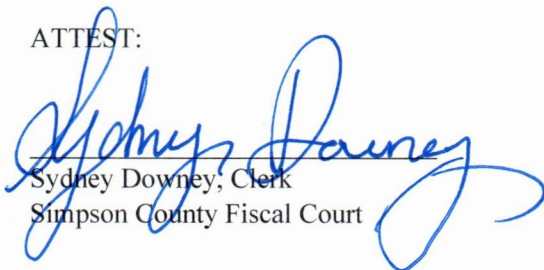 ATTEST:
Sydney Downey
Sydney Downey, Clerk
Simpson County Fiscal Court